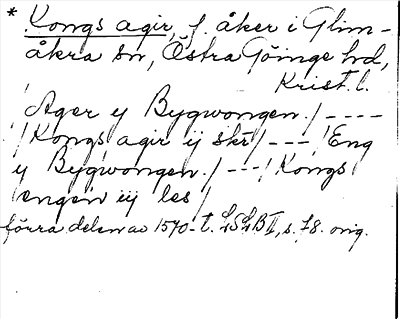 * Kongs agir, f. åker i Glim-
åkra sn, Östra Göinge hd,
Krist. l.
Ager y Bygwongen / ----
/ Kongs agir ij skr / --- / Eng
y Bygwongen / --- / Kongs
engen iij les /
förra delen av 1570-t. LSLB II, s. 78. orig.